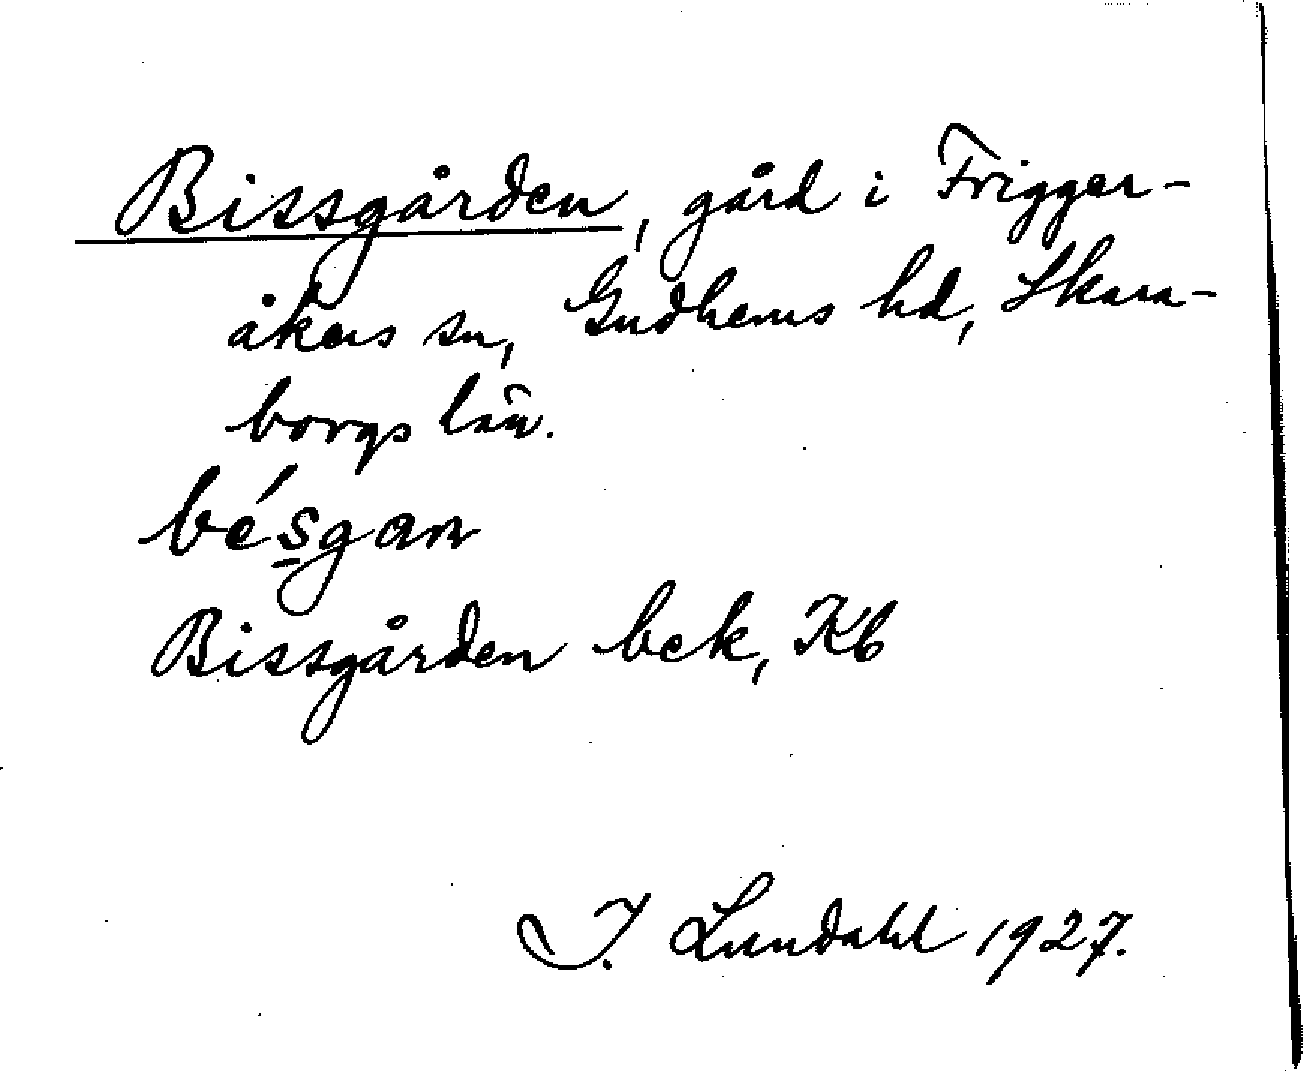 Bissgården, gård i Frigger-
åkers sn, Gudhems hd, Skara-
borgs län.
bésgan
Bissgården bek, Kb
I. Lundahl 1927.